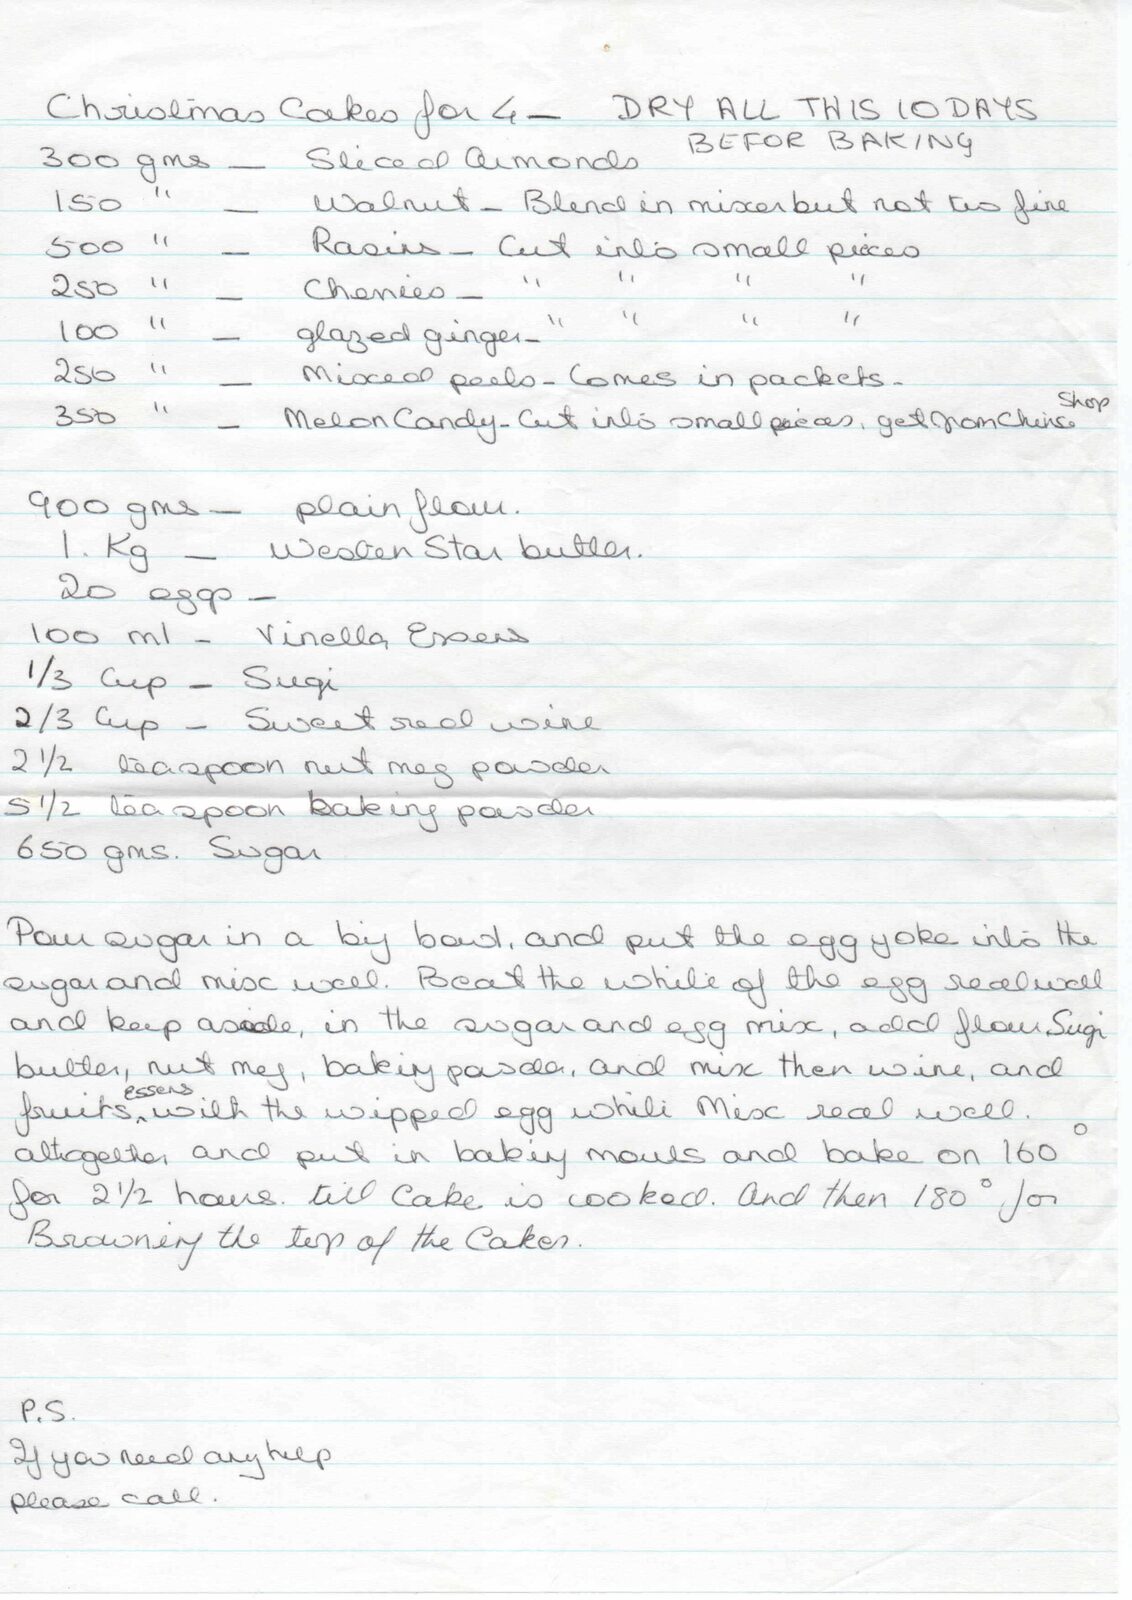 Christmas Cakes for 4 — DRY ALL THIS 10 DAYS
BEFOR BAKING
300 gms — Sliced Almonds
150 " — Walnut - Blend in mixer but not too fine
500 " — Rasins - Cut into small pieces
250 " — Cherries - " " " "
100 " — glazed ginger - " " " "
250 " — Mixed peels - Comes in packets.
350 " — Melon Candy - Cut into small pieces, get from Chinse Shop
900 gms — plain flour.
1. Kg — Westen Star butter.
20 eggs —
100 ml - Vinella Essens
1/3 Cup - Sugi
2/3 Cup - Sweet red wine
2 1/2 teaspoon nut meg powder
5 1/2 teaspoon baking powder
650 gms. Sugar
Pour sugar in a big bowl, and put the egg yoke into the
sugar and mix well. Beat the white of the egg real well
and keep aside, in the sugar and egg mix, add flour, Sugi
butter, nut meg, baking powder, and mix then wine, and
fruits, essens with the wipped egg white Mix real well.
altogether and put in baking mouls and bake on 160°
for 2 1/2 hours. till Cake is cooked. And then 180° for
Browning the top of the Cakes.
P.S.
If you need any help
please call.